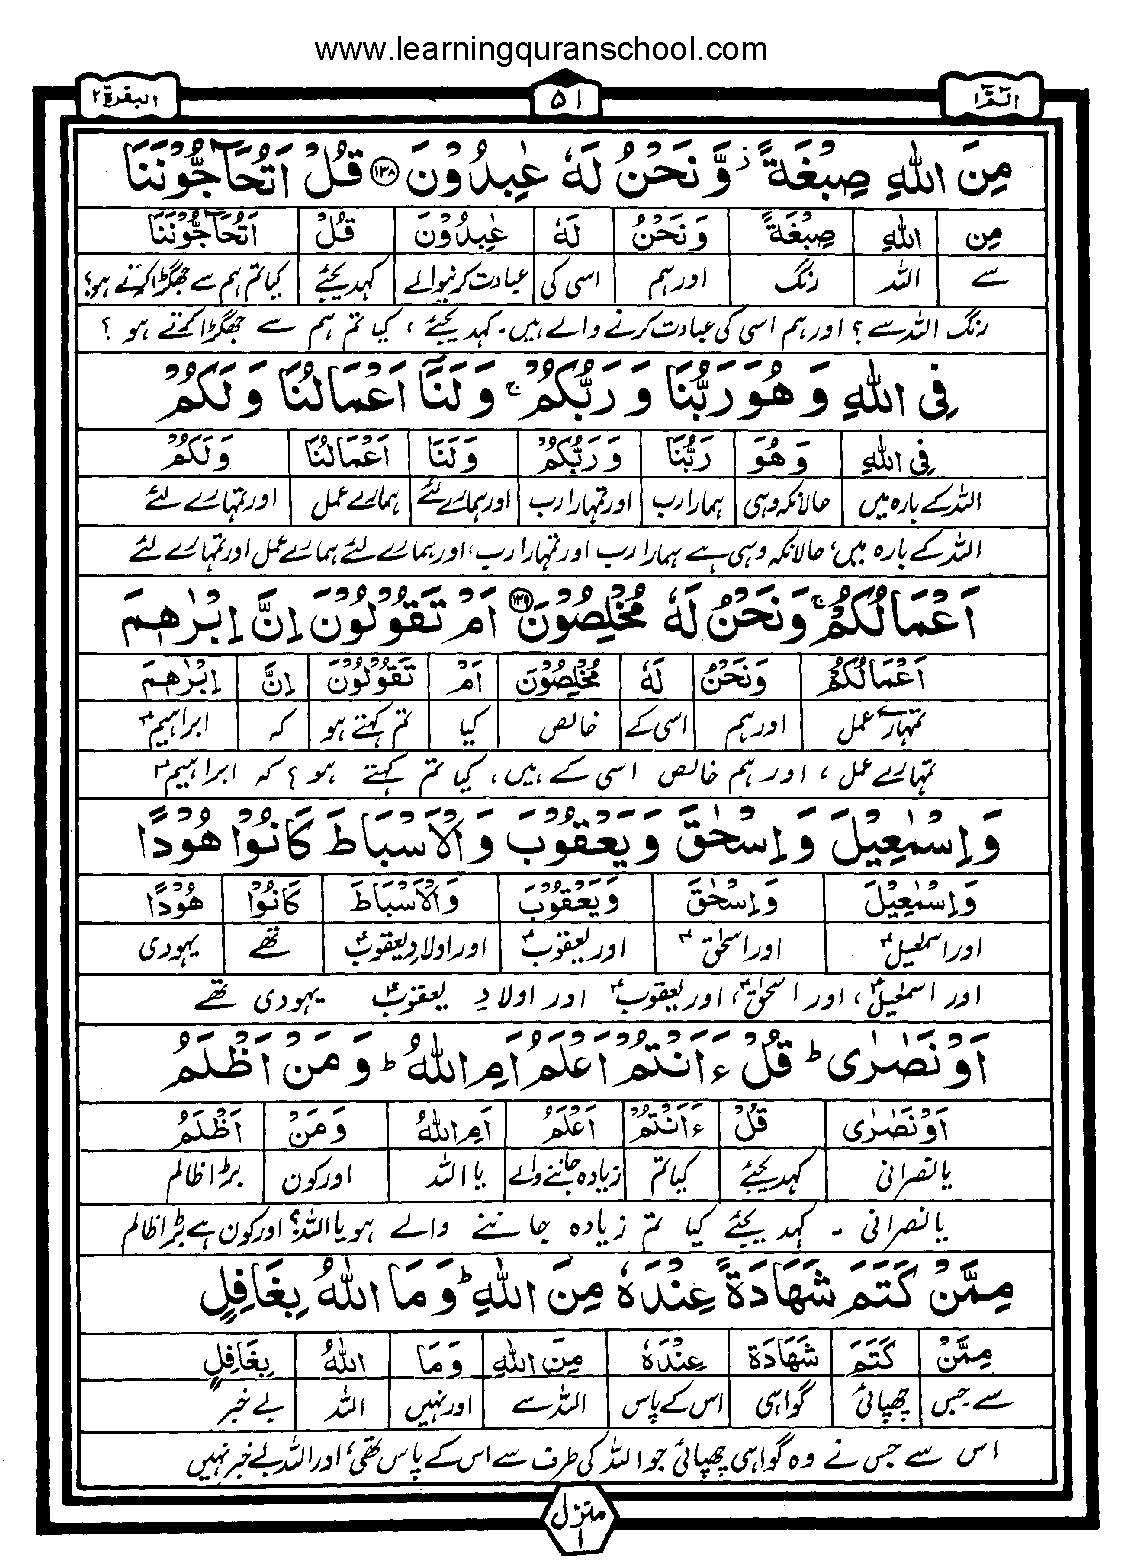 www.learningquranschool.com
الٓمّٓ ۱ ۵۱ البقرة ۲
مِنَ اللّٰهِ صِبْغَةً ۫ وَّ نَحْنُ لَهٗ عٰبِدُوْنَ ۱۳۸ قُلْ اَتُحَآجُّوْنَنَا
مِنَ اللّٰهِ صِبْغَةً وَنَحْنُ لَهٗ عٰبِدُوْنَ قُلْ اَتُحَآجُّوْنَنَا
سے اللہ رنگ اور ہم اسی کی عبادت کرنیوالے کہدیجئے کیا تم ہم سے جھگڑا کرتے ہو؟
رنگ اللہ سے ؟ اور ہم اسی کی عبادت کرنے والے ہیں۔ کہدیجئے ، کیا تم ہم سے جھگڑا کرتے ہو ؟
فِی اللّٰهِ وَ هُوَ رَبُّنَا وَ رَبُّكُمْ ۚ وَ لَنَآ اَعْمَالُنَا وَ لَكُمْ
فِی اللّٰهِ وَ هُوَ رَبُّنَا وَ رَبُّكُمْ وَ لَنَا اَعْمَالُنَا وَ لَكُمْ
اللہ کے بارہ میں حالانکہ وہی ہمارا رب اور تمہارا رب اور ہمارے لئے ہمارے عمل اور تمہارے لئے
اللہ کے بارہ میں، حالانکہ وہی ہے ہمارا رب اور تمہارا رب، اور ہمارے لئے ہمارے عمل اور تمہارے لئے
اَعْمَالُكُمْ ۚ وَ نَحْنُ لَهٗ مُخْلِصُوْنَ ۱۳۹ اَمْ تَقُوْلُوْنَ اِنَّ اِبْرٰهٖمَ
اَعْمَالُكُمْ وَنَحْنُ لَهٗ مُخْلِصُوْنَ اَمْ تَقُوْلُوْنَ اِنَّ اِبْرٰهٖمَ
تمہارے عمل اور ہم اسی کے خالص کیا تم کہتے ہو کہ ابراہیمؑ
تمہارے عمل ، اور ہم خالص اسی کے ہیں، کیا تم کہتے ہو ؟ کہ ابراہیمؑ
وَ اِسْمٰعِيْلَ وَ اِسْحٰقَ وَ يَعْقُوْبَ وَ الْاَسْبَاطَ كَانُوْا هُوْدًا
وَ اِسْمٰعِيْلَ وَ اِسْحٰقَ وَ يَعْقُوْبَ وَ الْاَسْبَاطَ كَانُوْا هُوْدًا
اور اسمٰعیلؑ اور اسحٰقؑ اور یعقوبؑ اور اولادِ یعقوبؑ تھے یہودی
اور اسمٰعیلؑ، اور اسحٰقؑ، اور یعقوبؑ اور اولادِ یعقوبؑ یہودی تھے
اَوْ نَصٰرٰی ؕ قُلْ ءَاَنْتُمْ اَعْلَمُ اَمِ اللّٰهُ ؕ وَ مَنْ اَظْلَمُ
اَوْ نَصٰرٰی قُلْ ءَاَنْتُمْ اَعْلَمُ اَمِ اللّٰهُ وَ مَنْ اَظْلَمُ
یا نصرانی کہدیجئے کیا تم زیادہ جاننے والے یا اللہ اور کون بڑا ظالم
یا نصرانی ۔ کہدیجئے کیا تم زیادہ جاننے والے ہو یا اللہ؟ اور کون ہے بڑا ظالم
مِمَّنْ كَتَمَ شَهَادَةً عِنْدَهٗ مِنَ اللّٰهِ ؕ وَ مَا اللّٰهُ بِغَافِلٍ
مِمَّنْ كَتَمَ شَهَادَة عِنْدَهٗ مِنَ اللّٰهِ وَ مَا اللّٰهُ بِغَافِلٍ
سے جس چھپائی گواہی اس کے پاس اللہ سے اور نہیں اللہ بے خبر
اس سے جس نے وہ گواہی چھپائی جو اللہ کی طرف سے اس کے پاس تھی، اور اللہ بے خبر نہیں
منزل ۱